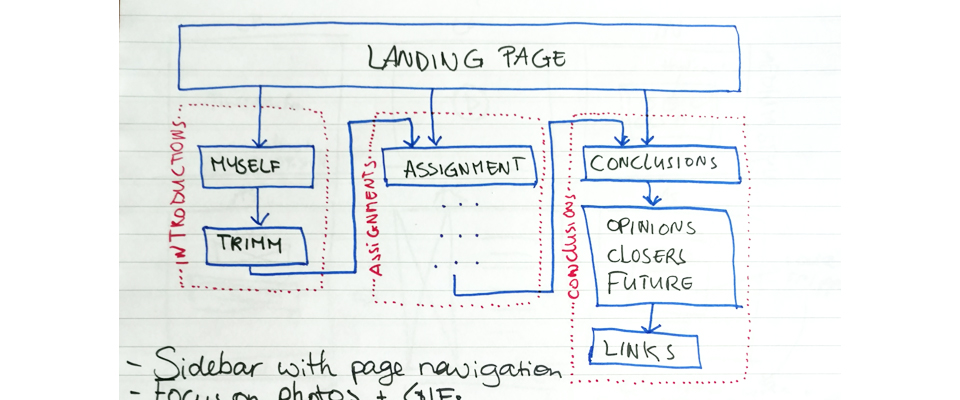 LANDING PAGE
INTRODUCTIONS
MYSELF
TRIMM
ASSIGNMENTS
ASSIGNMENT
CONCLUSIONS
CONCLUSIONS
OPINIONS
CLOSERS
FUTURE
LINKS
- Sidebar with page navigation
- Focus on photos + GIFs